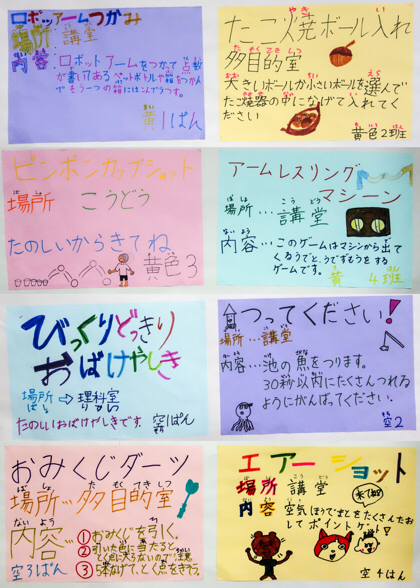 ロボットアームつかみ
場所:講堂
内容:ロボットアームをつかって点数
が書いてある ペットボトルや箱をつかん
でもう一つの箱にはこんでうつす。
黄1ぱん
たこ焼ボール入れ
多目的室
大きいボールか小さいボールを選ん
でたこ焼器の中になげて入れてく
ださい
黄色2班
ピンポンカップショット
場所 こうどう
たのしいからきてね
黄色3
アームレスリング
マシーン
場所…講堂
内容…このゲームはマシーンから出て
くるうでと、うでずもうをする
ゲームです。
黄 4班
びっくりどっきり
おばけやしき
場所→理科室
たのしいおばけやしきです 空1ぱん
つってください!
場所…講堂
内容…池の魚をつります。
30秒以内にたくさんつれる
ようにがんばってください。
空2
おみくじダーツ
場所…多目的室
内容…①おみくじを引く。
②引いた色に当たると
とく点に入らないので注意
③5本なげて、とく点をきそう。
空3ぱん
エアーショット
場所 講堂
内容 空気ほうでまとをたくさんたお
してポイントゲット!
来てね
空4はん